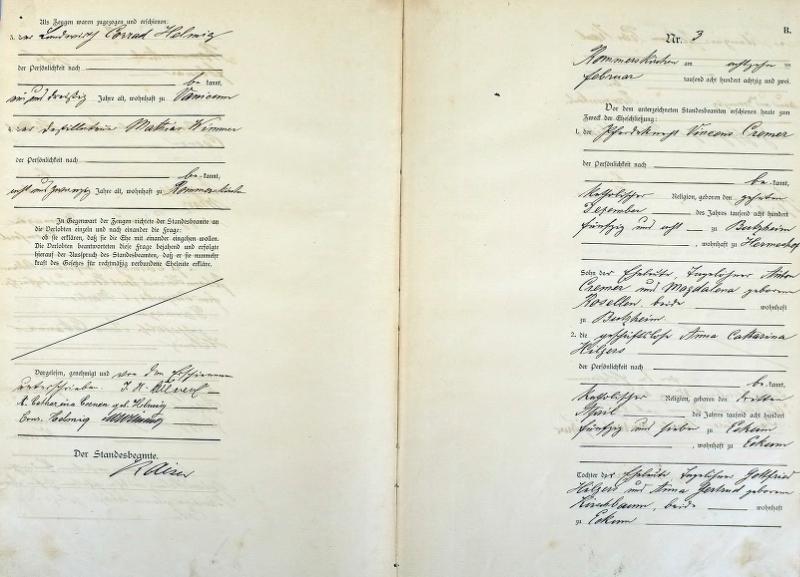 Als Zeugen waren zugezogen und erschienen:
3. der Landwirth Conrad Helmig
der Persönlichkeit nach
be kannt,
ein und dreißig Jahre alt, wohnhaft zu
4. der Destillateur Mathias Wimmer
der Persönlichkeit nach
be kannt,
acht und zwanzig Jahre alt, wohnhaft zu Rommerskirchen
In Gegenwart der Zeugen richtete der Standesbeamte an
die Verlobten einzeln und nach einander die Frage:
ob sie erklären, daß sie die Ehe mit einander eingehen wollen.
Die Verlobten beantworteten diese Frage bejahend und erfolgte
hierauf der Ausspruch des Standesbeamten, daß er sie nunmehr
kraft des Gesetzes für rechtmäßig verbundene Eheleute erkläre.
Vorgelesen, genehmigt und von den Erschienenen
unterschrieben.
A. Catharina geb. Helmig
Conr. Helmig
Der Standesbeamte.
Kaiser
B.
Nr. 3
Rommerskirchen am achtzehn
Februar tausend acht hundert achtzig und zwei.
Vor dem unterzeichneten Standesbeamten erschienen heute zum
Zweck der Eheschließung:
1. der Pferdeknecht Vincens Cremer
der Persönlichkeit nach
be kannt,
katholischer Religion, geboren den zehnten
Dezember des Jahres tausend acht hundert
fünfzig und acht zu Butzheim
, wohnhaft zu Hermeshof
Sohn der Eheleute, Tagelöhner Anton
Cremer und Magdalena geborene
Rosellen, beide wohnhaft
zu Butzheim
2. die geschäftslose Anna Cattarina
Hilgers
der Persönlichkeit nach
be kannt,
katholischer Religion, geboren den dritten
April des Jahres tausend acht hundert
fünfzig und sieben zu Eckum
, wohnhaft zu Eckum
Tochter der Eheleute, Tagelöhner Gottfried
Hilgers und Anna Gertrud geborene
Kirschbaum, beide wohnhaft
zu Eckum